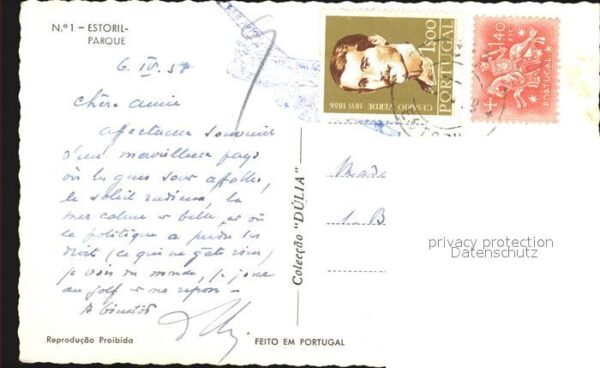 N.º 1 – ESTORIL-
PARQUE
6. IV. 57
Chère amie
Affectueux souvenir
d'un merveilleux pays
où les gens sont affables,
le soleil radieux, la
mer calme & belle, et où
la politique a perdu ses
droits (ce qui ne gâte rien)
je vois du monde, je joue
au golf & me repose –
A bientôt
Colecção "DÚLIA"
1$00
PORTUGAL
CESÁRIO VERDE 1855-1886
1$40
PORTUGAL
Mada
1. B
privacy protection
Datenschutz
Reprodução Proibida
FEITO EM PORTUGAL